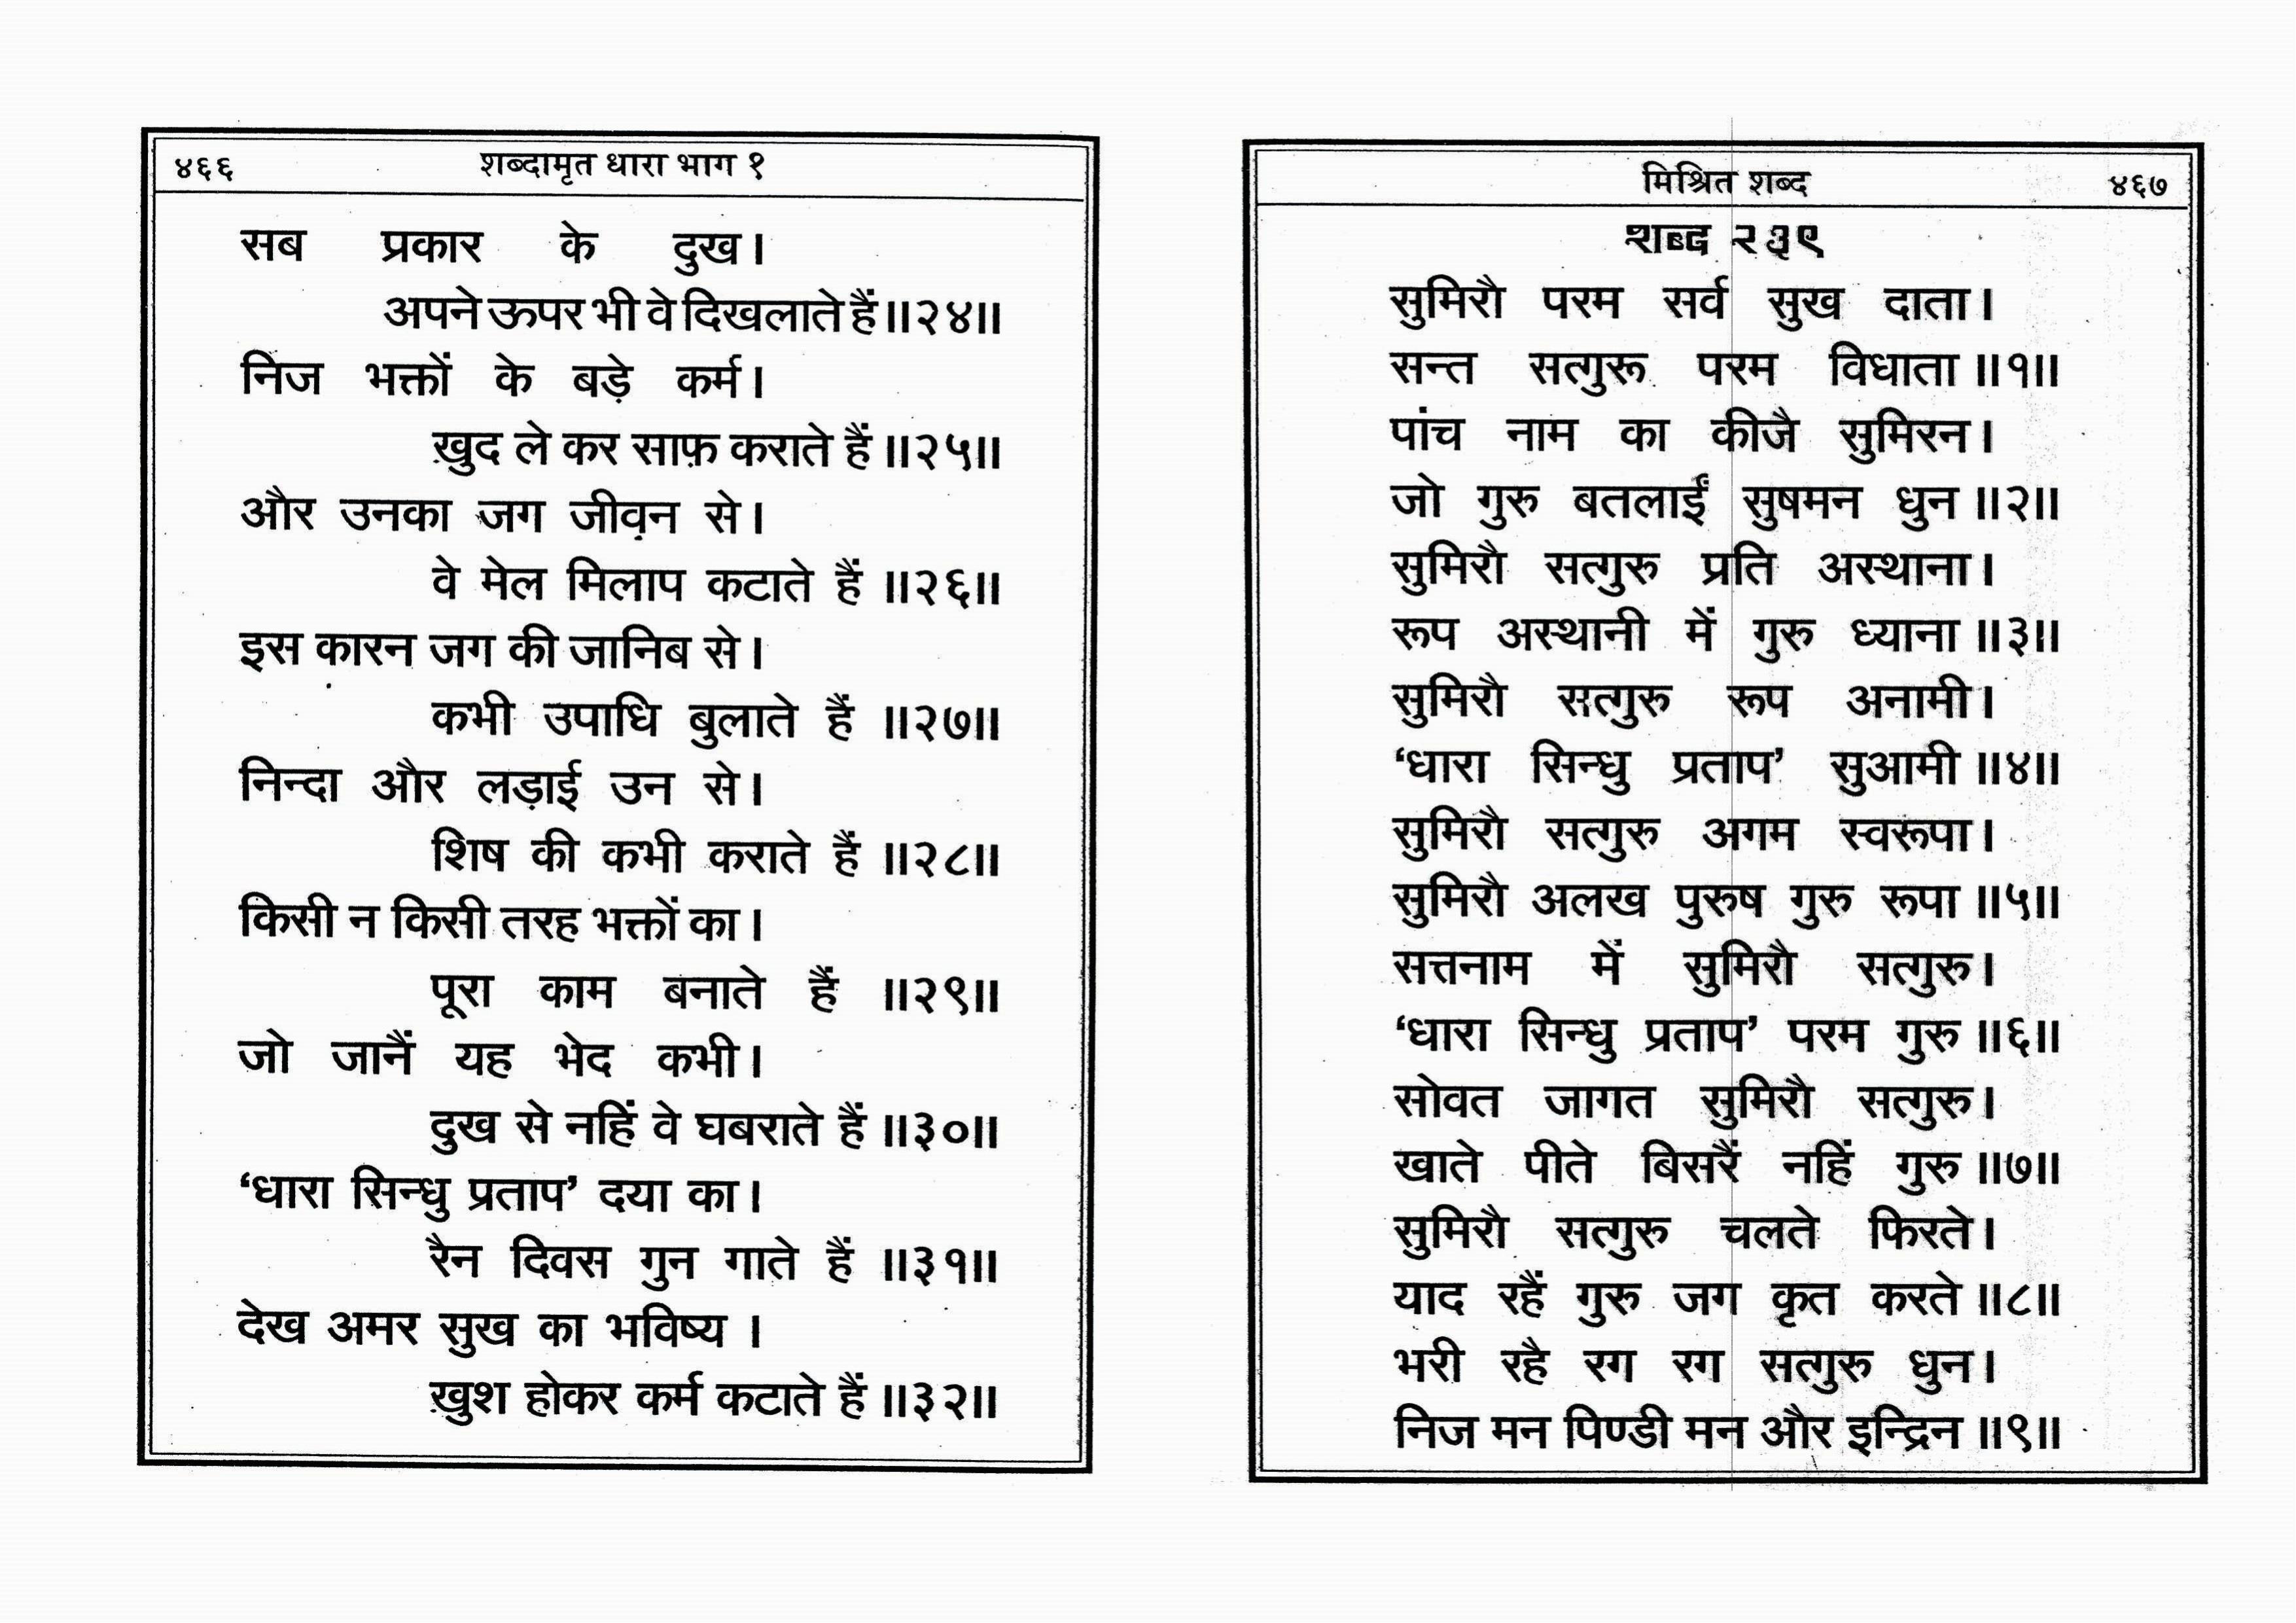 ४६६ शब्दामृत धारा भाग १
सब प्रकार के दुख।
अपने ऊपर भी वे दिखलाते हैं॥२४॥
निज भक्तों के बड़े कर्म।
ख़ुद ले कर साफ़ कराते हैं॥२५॥
और उनका जग जीवन से।
वे मेल मिलाप कटाते हैं ॥२६॥
इस कारन जग की जानिब से।
कभी उपाधि बुलाते हैं ॥२७॥
निन्दा और लड़ाई उन से।
शिष की कभी कराते हैं ॥२८॥
किसी न किसी तरह भक्तों का।
पूरा काम बनाते हैं ॥२९॥
जो जानैं यह भेद कभी।
दुख से नहिं वे घबराते हैं॥३०॥
‘धारा सिन्धु प्रताप’ दया का।
रैन दिवस गुन गाते हैं ॥३१॥
देख अमर सुख का भविष्य ।
ख़ुश होकर कर्म कटाते हैं॥३२॥
मिश्रित शब्द ४६७
शब्द २३९
सुमिरौ परम सर्व सुख दाता।
सन्त सत्गुरू परम विधाता॥१॥
पांच नाम का कीजै सुमिरन।
जो गुरु बतलाईं सुषमन धुन॥२॥
सुमिरौ सत्गुरु प्रति अस्थाना।
रूप अस्थानी में गुरु ध्याना॥३॥
सुमिरौ सत्गुरु रूप अनामी।
‘धारा सिन्धु प्रताप’ सुआमी॥४॥
सुमिरौ सत्गुरु अगम स्वरूपा।
सुमिरौ अलख पुरुष गुरु रूपा॥५॥
सत्तनाम में सुमिरौ सत्गुरु।
‘धारा सिन्धु प्रताप’ परम गुरु॥६॥
सोवत जागत सुमिरौ सत्गुरु।
खाते पीते बिसरैं नहिं गुरु॥७॥
सुमिरौ सत्गुरु चलते फिरते।
याद रहैं गुरु जग कृत करते॥८॥
भरी रहै रग रग सत्गुरु धुन।
निज मन पिण्डी मन और इन्द्रिन॥९॥